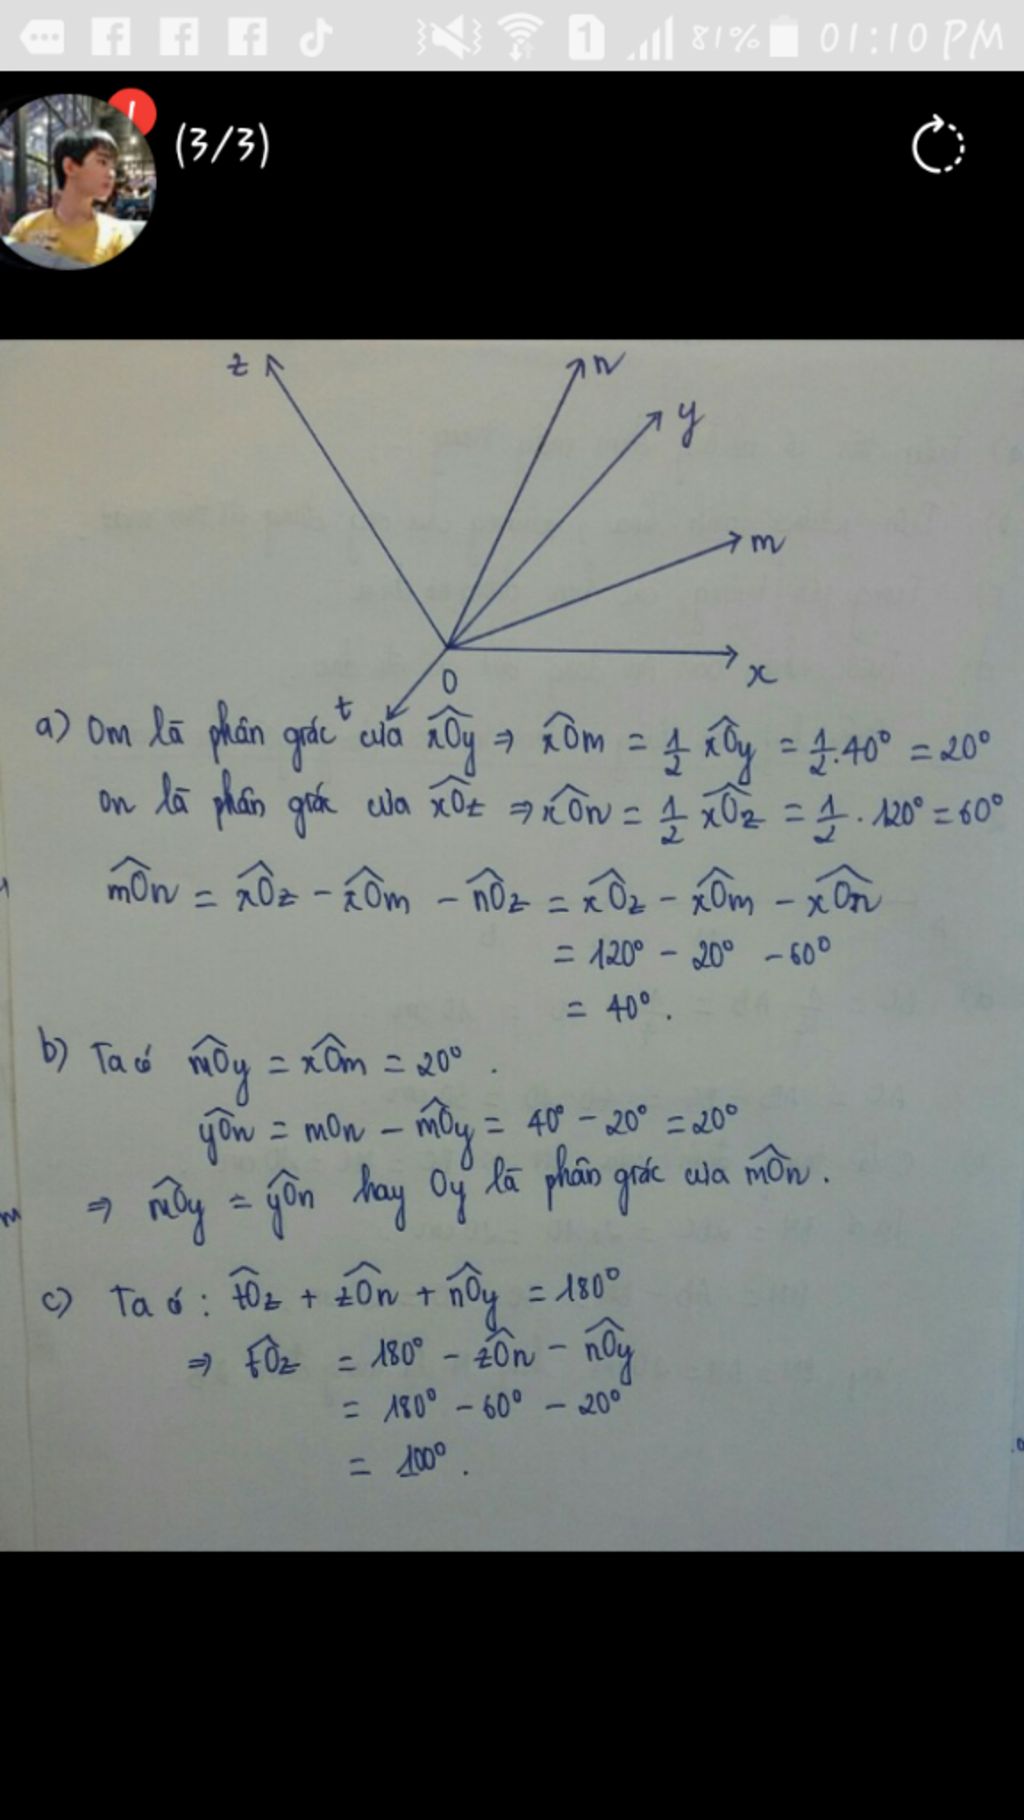 81% 01:10 PM
(3/3)
z
n
y
m
x
O
t
a) Om là phân giác của xÔy ⇒ xÔm = 1/2 xÔy = 1/2.40° = 20°
On là phân giác của xÔz ⇒ xÔn = 1/2 xÔz = 1/2 . 120° = 60°
mÔn = xÔz - xÔm - nÔz = xÔz - xÔm - xÔn
= 120° - 20° - 60°
= 40°.
b) Ta có mÔy = xÔm = 20°.
yÔn = mOn - mÔy = 40° - 20° = 20°
⇒ mÔy = yÔn hay Oy là phân giác của mÔn.
c) Ta có: tÔz + zÔn + nÔy = 180°
⇒ tÔz = 180° - zÔn - nÔy
= 180° - 60° - 20°
= 100°.